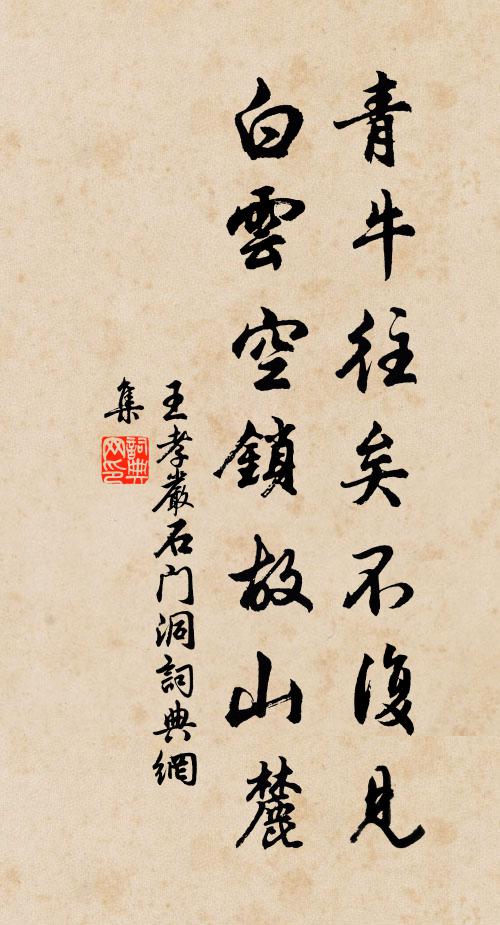 青牛往矣不復見
白雲空鎖故山麓
王孝嚴石门洞詞典網
集
詞典網印